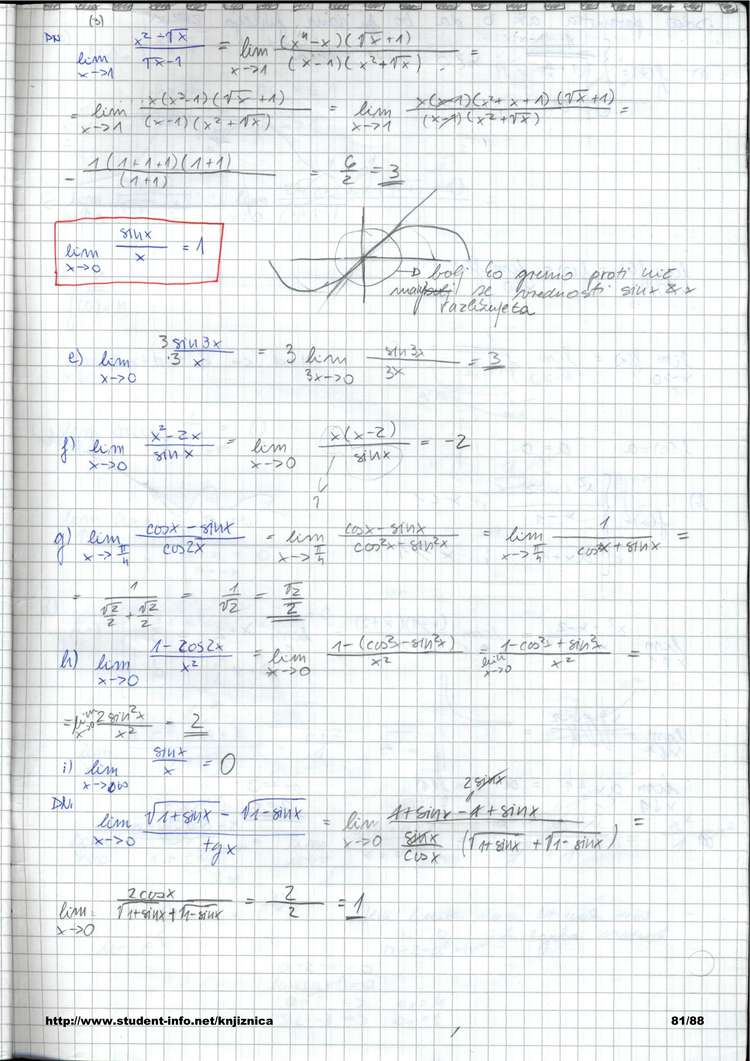 (3)
DN lim x→1 (x² - √x)/(√x - 1) = lim x→1 (x⁴ - x)(√x + 1)/((x - 1)(x² + √x)) =
= lim x→1 x(x³ - 1)(√x + 1)/((x - 1)(x² + √x)) = lim x→1 x(x - 1)(x² + x + 1)(√x + 1)/((x - 1)(x² + √x)) =
= 1(1 + 1 + 1)(1 + 1)/(1 + 1) = 6/2 = 3
lim x→0 sinx/x = 1
bolj ko gremo proti nič
manj se vrednosti sinx & x
razlikujeta
e) lim x→0 3 sin3x/(3 x) = 3 lim 3x→0 sin3x/3x = 3
f) lim x→0 (x² - 2x)/sinx = lim x→0 x(x - 2)/sinx = -2
1
g) lim x→π/4 (cosx - sinx)/cos2x = lim x→π/4 (cosx - sinx)/(cos²x - sin²x) = lim x→π/4 1/(cosx + sinx) =
= 1/(√2/2 + √2/2) = 1/√2 = √2/2
h) lim x→0 (1 - cos2x)/x² = lim x→0 (1 - (cos²x - sin²x))/x² = lim x→0 (1 - cos²x + sin²x)/x² =
= lim x→0 2sin²x/x² = 2
i) lim x→∞ sinx/x = 0
2 sinx
DN. lim x→0 (√(1+sinx) - √(1-sinx))/tgx = lim x→0 (1 + sinx - 1 + sinx)/(sinx/cosx (√(1+sinx) + √(1-sinx))) =
lim x→0 2cosx/(√(1+sinx) + √(1-sinx)) = 2/2 = 1
http://www.student-info.net/knjiznica
81/88